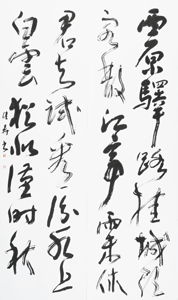 西原驛路挂城頭
客散江亭雨未休
君去試看汾水上
白雲猶似漢時秋